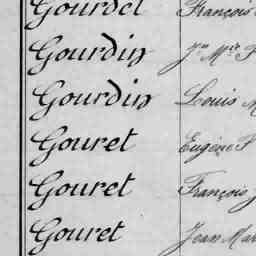 Gourdel François
Gourdin Jn Mie F
Gourdin Louis M
Gouret Eugène F
Gouret François J
Gouret Jean Mar